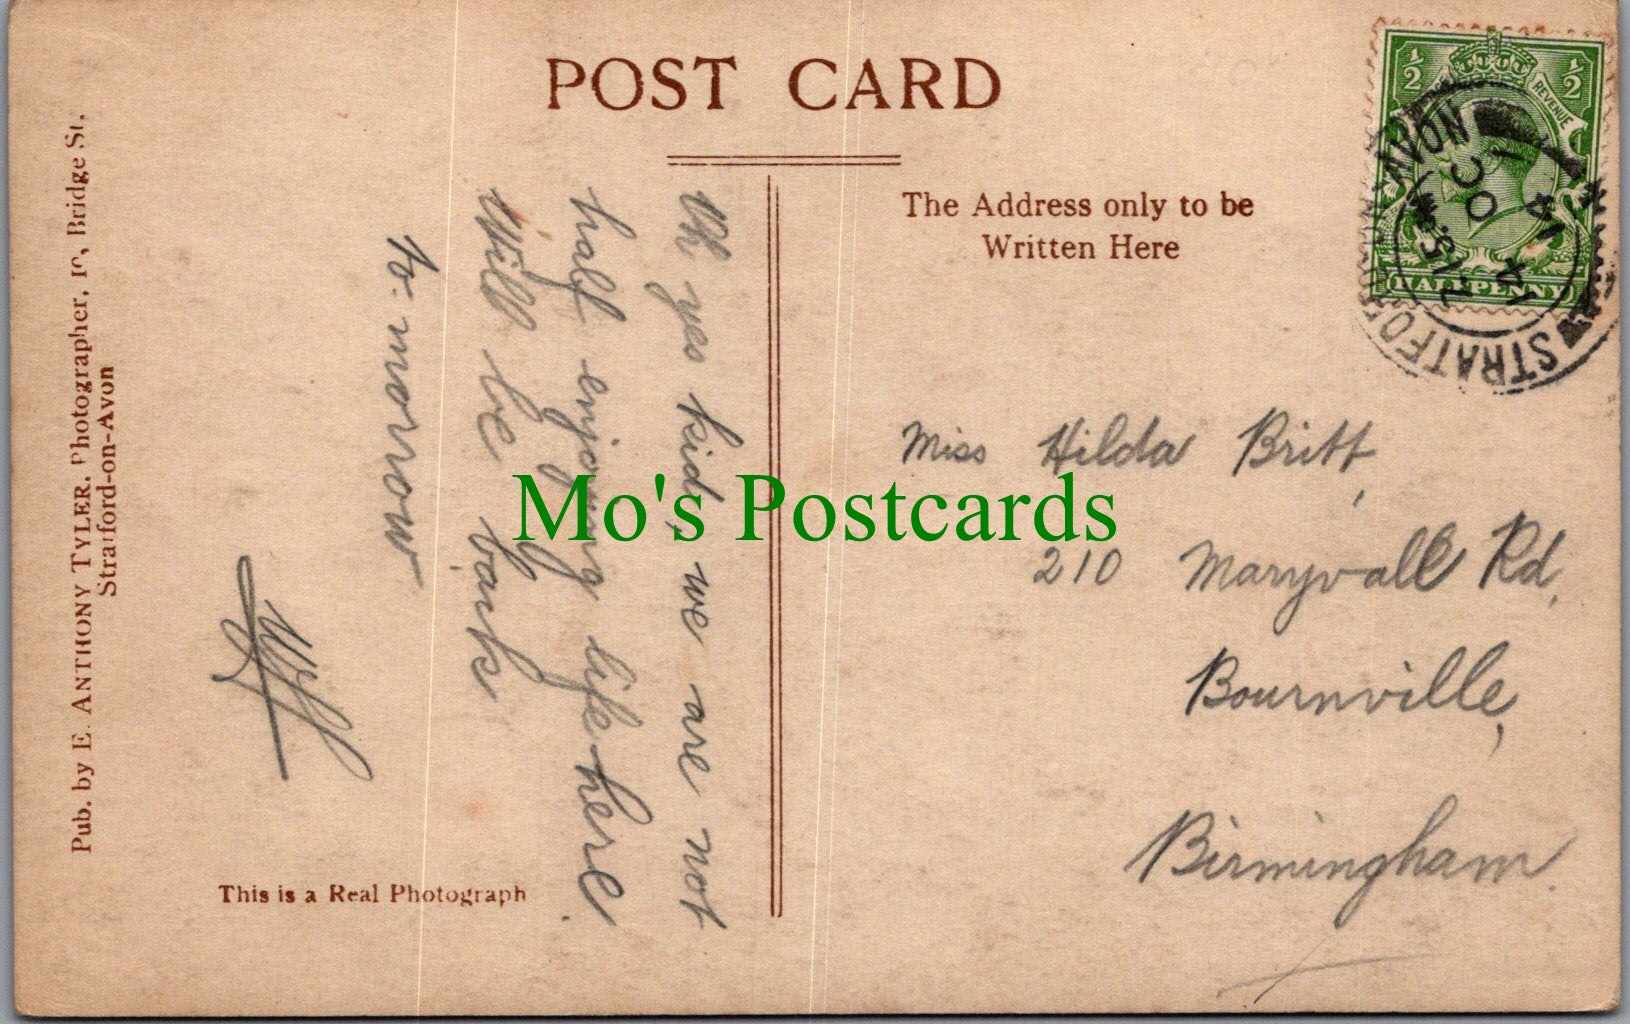 POST CARD
The Address only to be
Written Here
½ ½
REVENUE
HALFPENNY
STRATFORD-ON-AVON
7.15 PM
OC 1
14
Oh yes kid, we are not
half enjoying life here.
Will be back
to-morrow
Miss Hilda Britt,
210 Maryvale Rd,
Bournville,
Birmingham.
Pub. by E. ANTHONY TYLER, Photographer, 10, Bridge St.
Stratford-on-Avon
This is a Real Photograph
Mo's Postcards